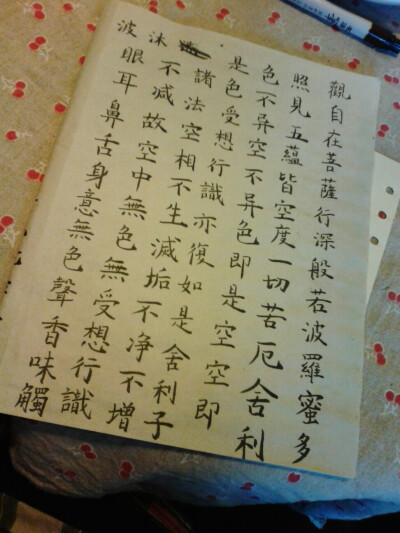 觀自在菩薩行深般若波羅蜜多
照見五蘊皆空度一切若厄舍利
色不异空不异色即是空空即
是色受想行識亦復如是舍利子
諸法空相不生滅垢不净不增
沫不减故空中無色無受想行識
波眼耳鼻舌身意無色聲香味觸